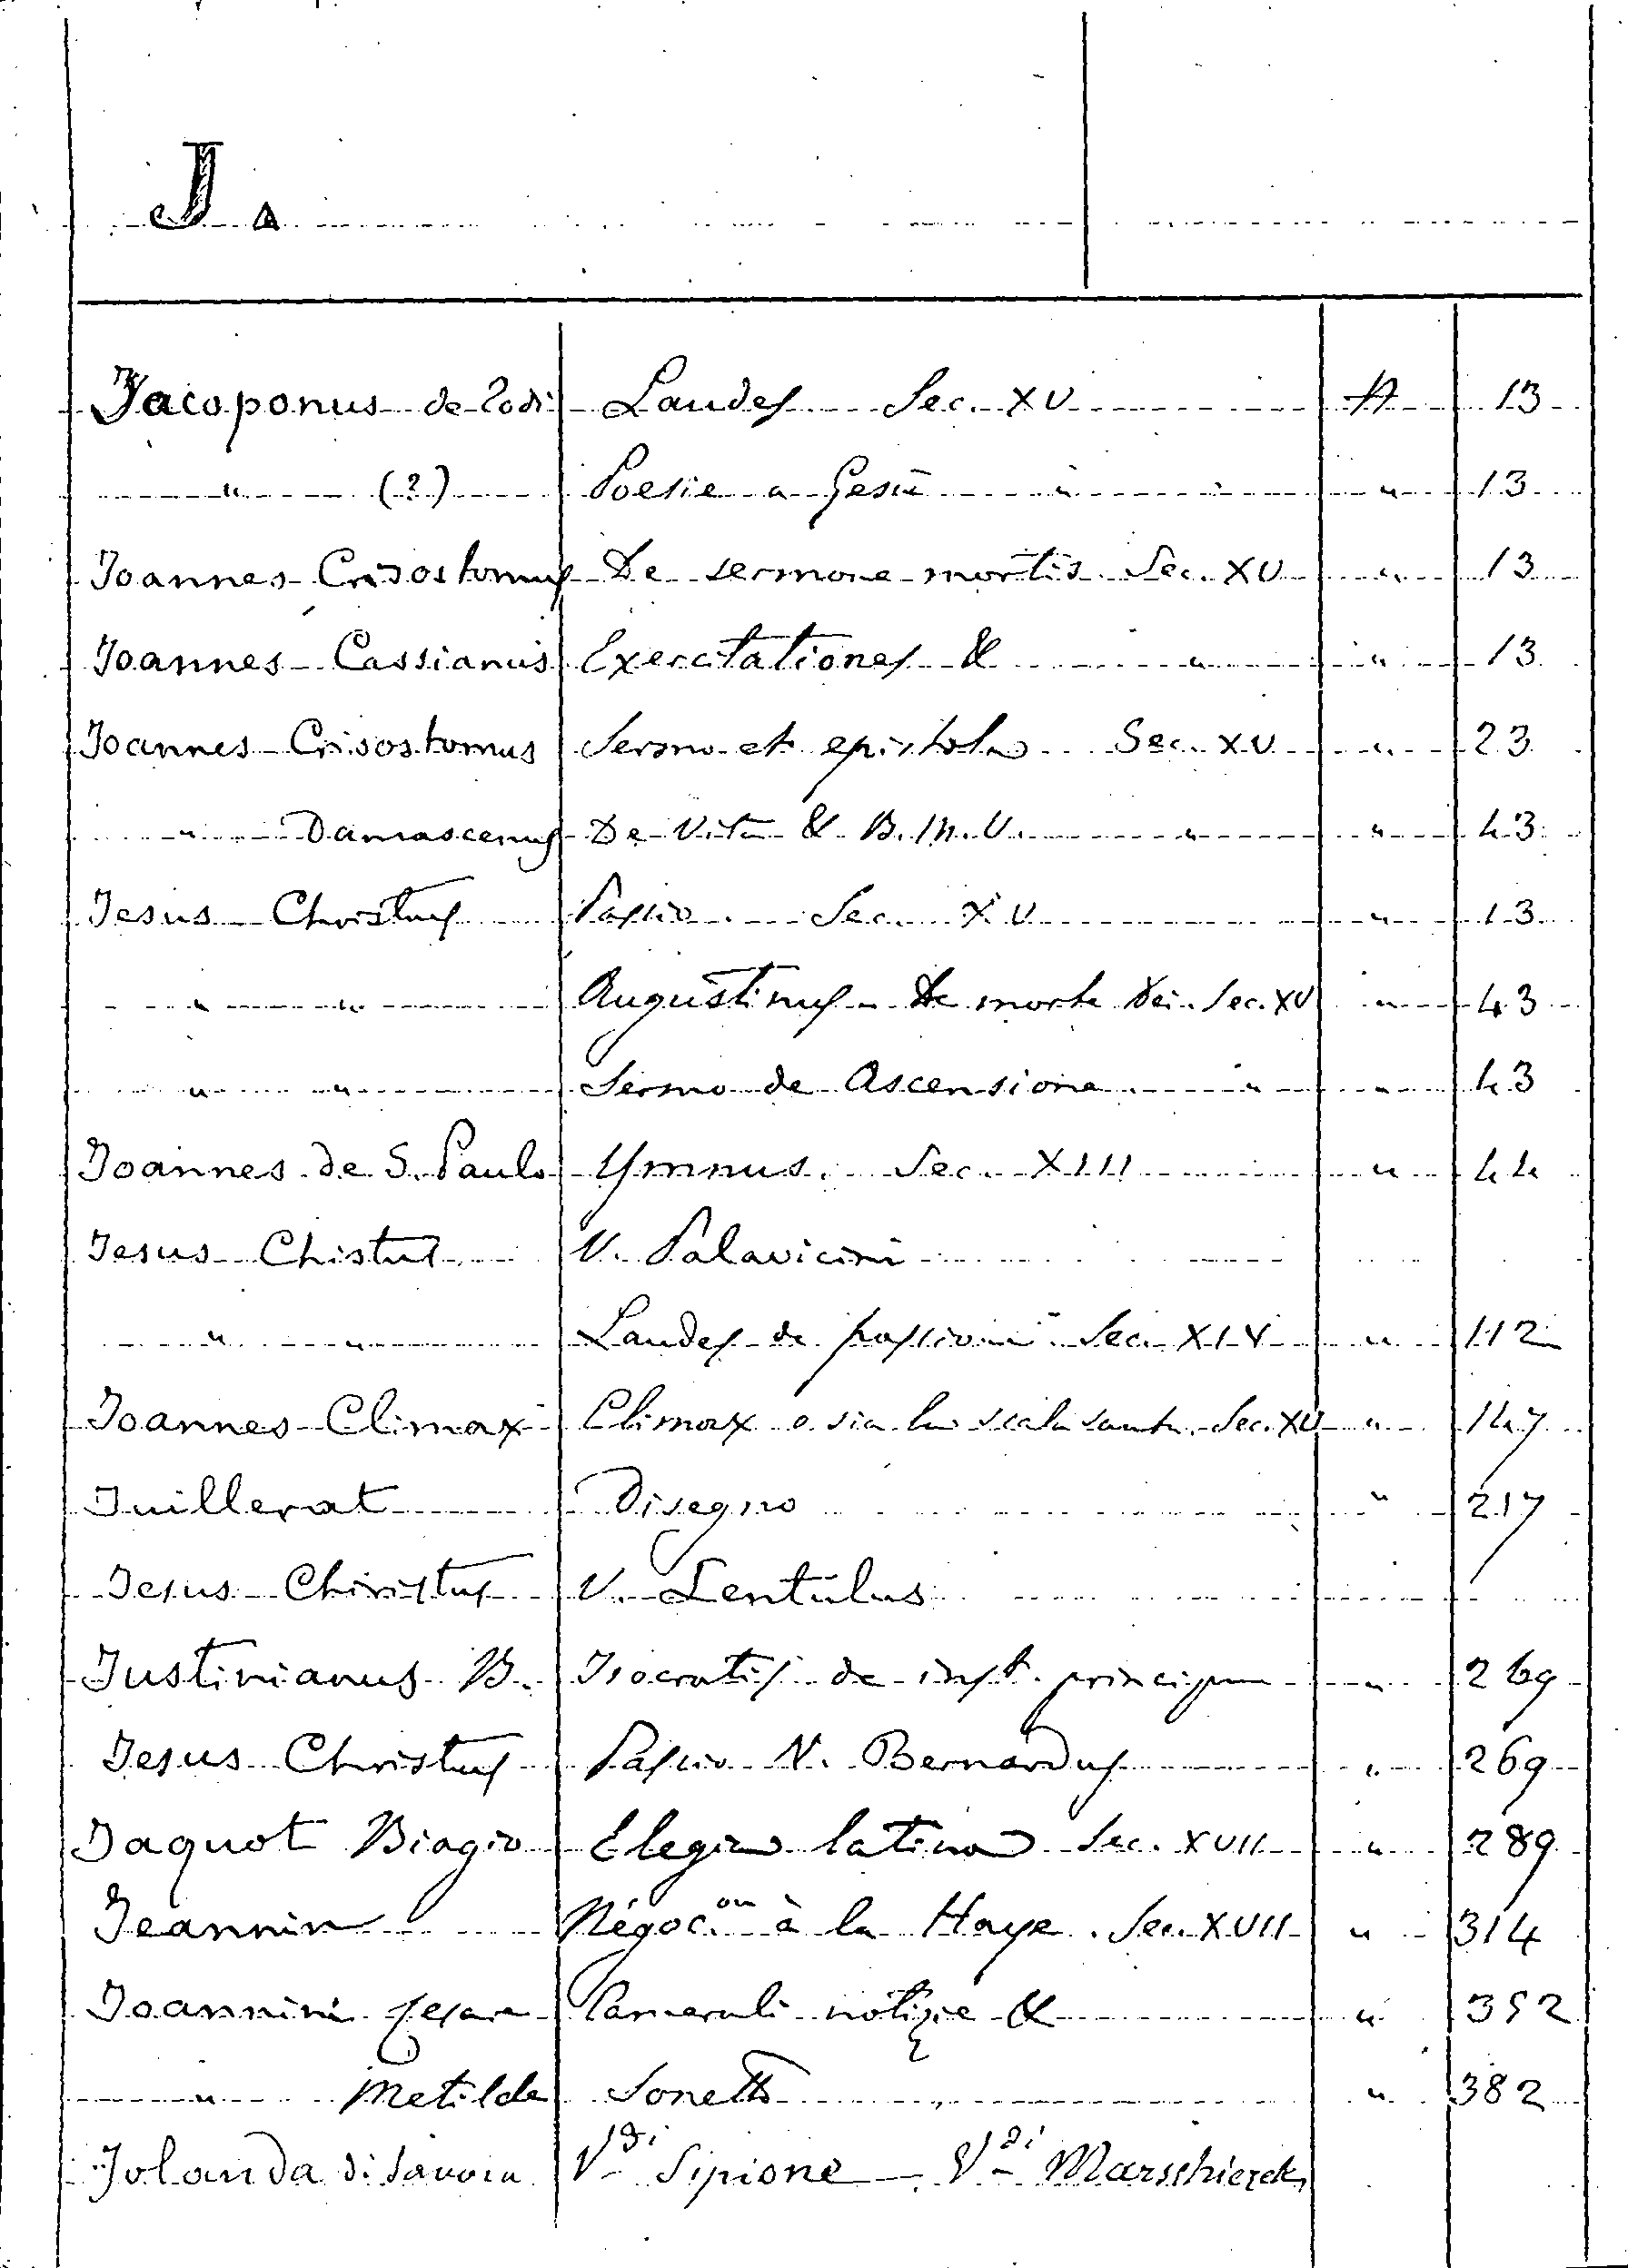 J.
Jacoponus de Todi Laudes Sec. XV A 13
" (?) Poesie a Gesù " " 13
Joannes Crisostomus De sermone mortis Sec. XV " 13
Joannes Cassianus Exercitationes & " " 13
Joannes Crisostomus Sermo et epistola Sec. XV " 23
" Damascenus De Vita & B. M. V. " " 43
Jesus Christus Passio. Sec. XV " 13
" " Augustinus - De morte Dei. Sec. XV " 43
" " Sermo de Ascensione " " 43
Joannes de S. Paulo Ymnus. Sec. XIII " 44
Jesus Chistus V. Palavicini
" " Laudes de passione Sec. XIV " 112
Joannes Climax Climax o sia la scala santa. Sec. XV " 147
Juillerat Disegno " 217
Jesus Christus V. Lentulus
Justinianus B. Isocratis de inst. principum " 269
Jesus Christus Passio V. Bernardus " 269
Jaquot Biagio Elegia latina Sec. XVII " 289
Jeannin Négoc.on à la Haye. Sec. XVII " 314
Joannini Cesare Camerali notizie & " 352
" Metilde Sonetto " 382
Jolanda di Savoia Vdi Sipione - Vdi